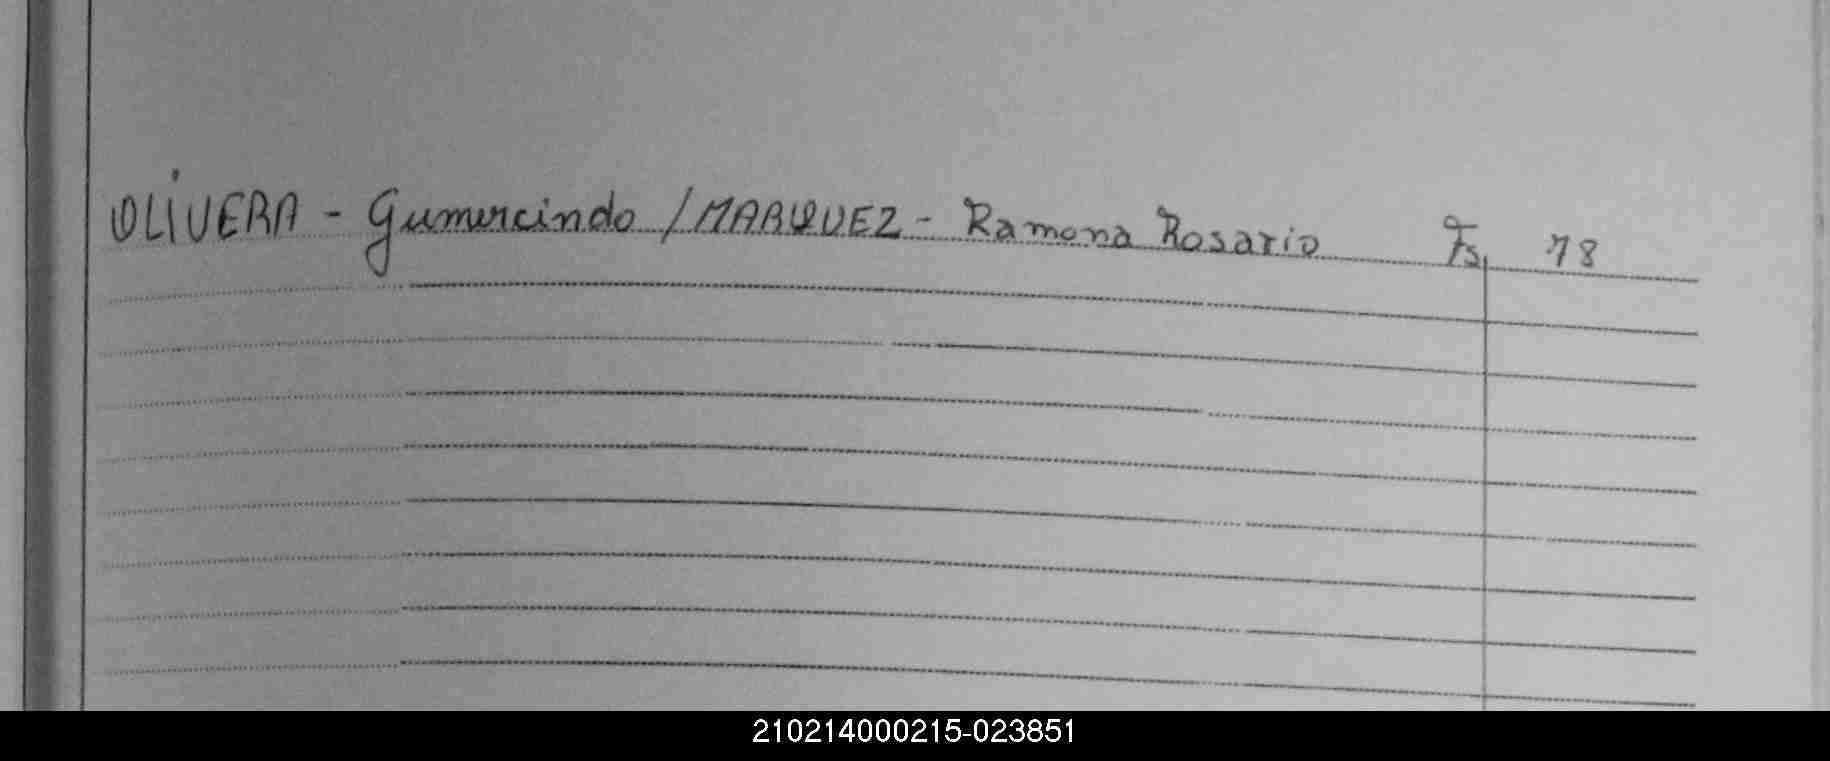 OLIVERA - Gumercindo / MARQUEZ - Ramona Rosario Fs. 78
210214000215-023851